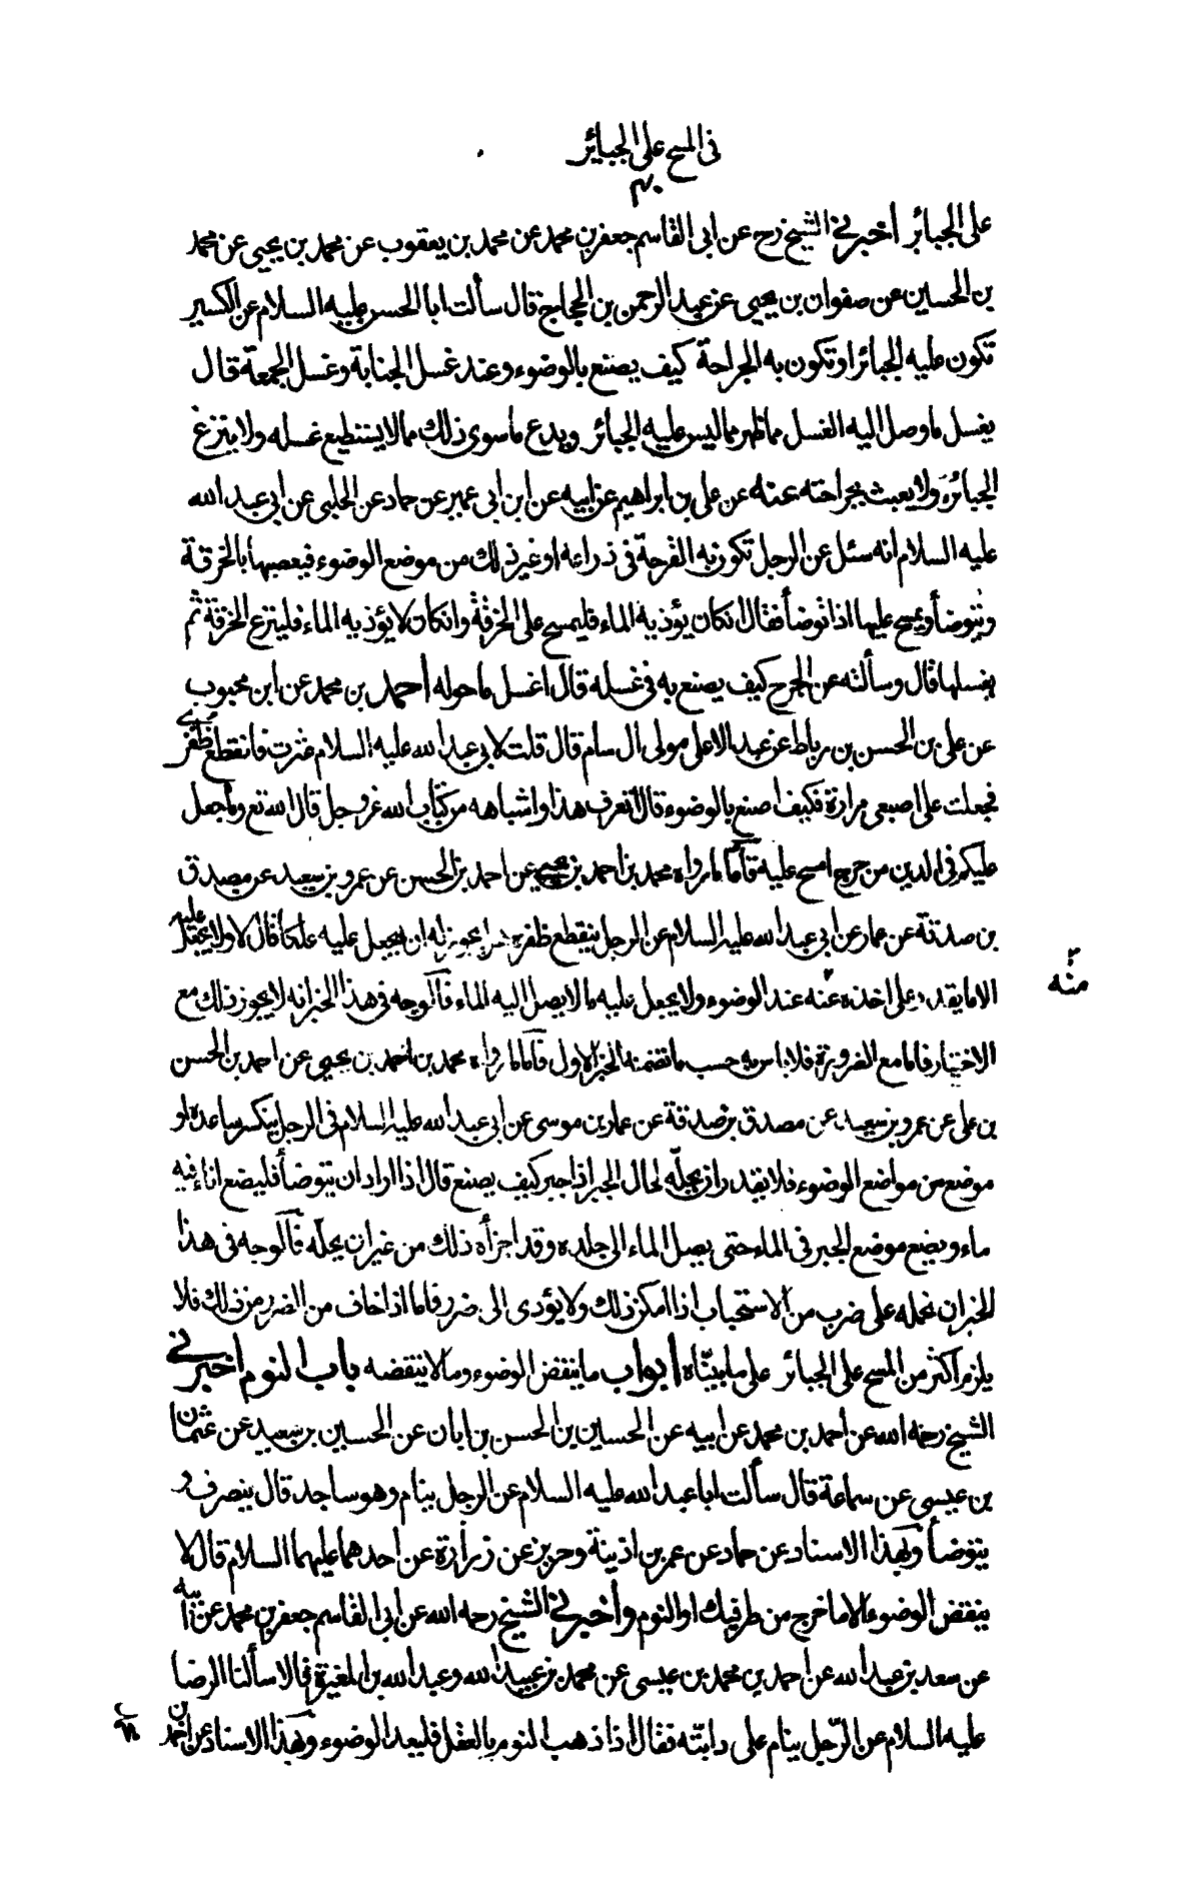 فى المسح على الجبائر
٤٠
على الجبائر اخبرنى الشيخ رح عن ابى القاسم جعفر بن محمد عن محمد بن يعقوب عن محمد بن يحيى عن محمد
بن الحسين عن صفوان بن يحيى عن عبد الرحمن بن الحجاج قال سألت ابا الحسن عليه السلام عن الكسير
تكون عليه الجبائر او تكون به الجراحة كيف يصنع بالوضوء وعند غسل الجنابة وغسل الجمعة قال
يغسل ما وصل اليه الغسل مما ظهر مما ليس عليه الجبائر ويدع ما سوى ذلك مما لا يستطيع غسله ولا ينزع
الجبائر ولا يعبث بجراحته عنه عن على بن ابراهيم عن ابيه عن ابن ابى عمير عن حماد عن الحلبى عن ابى عبد الله
عليه السلام انه سئل عن الرجل تكون به القرحة فى ذراعه او غير ذلك من موضع الوضوء فيعصبها بالخرقة
ويتوضأ ويمسح عليها اذا توضأ فقال ان كان يؤذيه الماء فليمسح على الخرقة وان كان لا يؤذيه الماء فلينزع الخرقة ثم
يغسلها قال وسألته عن الجرح كيف يصنع به فى غسله قال اغسل ما حوله احمد بن محمد عن ابن محبوب
عن على بن الحسن بن رباط عن عبد الاعلى مولى ال سام قال قلت لابى عبد الله عليه السلام عثرت فانقطع ظفرى
فجعلت على اصبعى مرارة فكيف اصنع بالوضوء قال تعرف هذا واشباهه من كتاب الله عز وجل قال الله تع وما جعل
عليكم فى الدين من حرج امسح عليه فاما ما رواه محمد بن احمد بن يحيى عن احمد بن الحسن عن عمرو بن سعيد عن مصدق
بن صدقة عن عمار عن ابى عبد الله عليه السلام عن الرجل ينقطع ظفره هل يجوز له ان يجعل عليه علكا قال لا ولا يجعل عليه
الا ما يقدر على اخذه عنه عند الوضوء ولا يجعل عليه ما لا يصل اليه الماء فالوجه فى هذا الخبر انه لا يجوز ذلك مع
منه
الاختيار فاما مع الضرورة فلا باس به حسب ما تضمنه الخبر الاول فاما ما رواه محمد بن احمد بن يحيى عن احمد بن الحسن
بن على عن عمرو بن سعيد عن مصدق بن صدقة عن عمار بن موسى عن ابى عبد الله عليه السلام فى الرجل ينكسر ساعده او
موضع من مواضع الوضوء فلا يقدر ان يحله لحال الجبر اذا جبر كيف يصنع قال اذا اراد ان يتوضأ فليضع اناء فيه
ماء ويضع موضع الجبر فى الماء حتى يصل الماء الى جلده وقد اجزأه ذلك من غير ان يحله فالوجه فى هذا
الخبر ان نحمله على ضرب من الاستحباب اذا امكن ذلك ولا يؤدى الى ضرر فاما اذا خاف من الضرر من ذلك فلا
يلزم اكثر من المسح على الجبائر على ما بيناه ابواب ما ينقض الوضوء وما لا ينقضه باب النوم اخبرنى
الشيخ رحمه الله عن احمد بن محمد عن ابيه عن الحسين بن الحسن بن ابان عن الحسين بن سعيد عن عثمان
بن عيسى عن سماعة قال سألت ابا عبد الله عليه السلام عن الرجل ينام وهو ساجد قال ينصرف و
يتوضأ وبهذا الاسناد عن حماد عن عمر بن اذينة وحريز عن زرارة عن احدهما عليهما السلام قال لا
ينقض الوضوء الا ما خرج من طرفيك او النوم واخبرنى الشيخ رحمه الله عن ابى القاسم جعفر بن محمد عن ابيه
عن سعد بن عبد الله عن احمد بن محمد بن عيسى عن محمد بن عبيد الله وعبد الله بن المغيرة قالا سألنا الرضا
عليه السلام عن الرجل ينام على دابته فقال اذا ذهب النوم بالعقل فليعد الوضوء وبهذا الاسناد عن احمد بن